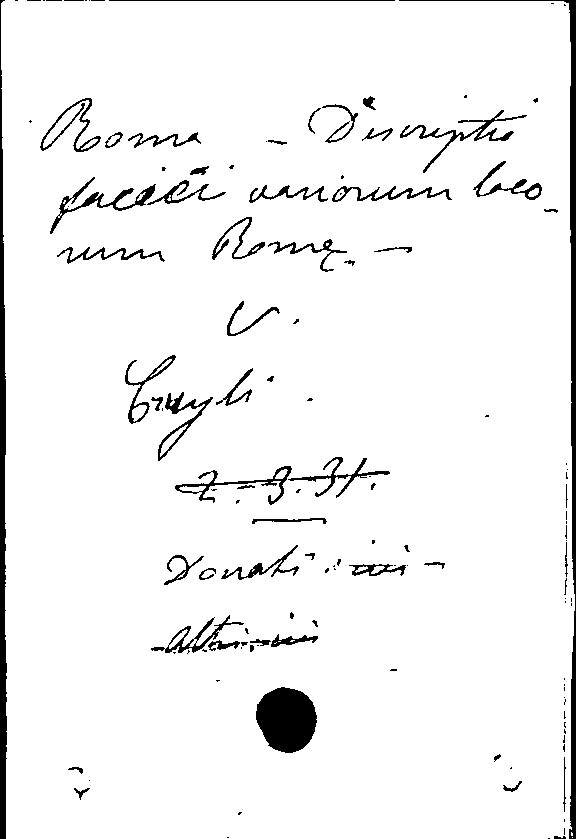 Roma - Discriptio
faciei variorum loco-
rum Romę -
V.
Cruyli.
2. 3. 31.
Donati. ivi -
Altri ivi